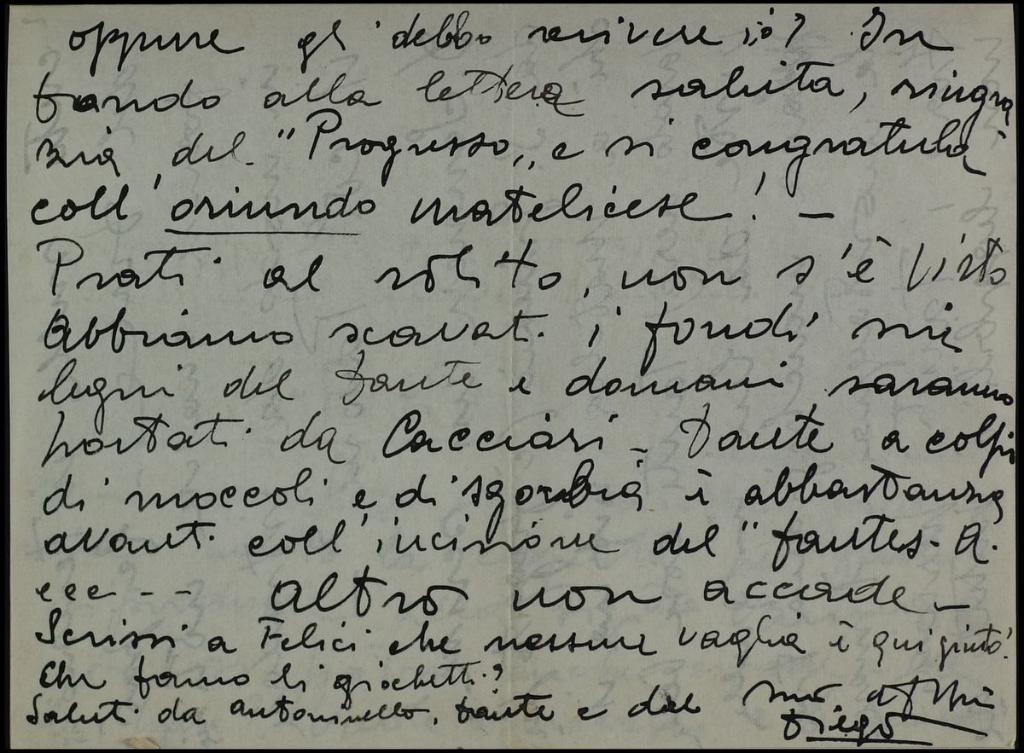 oppure gli debbo scrivere io? In
fondo alla lettera saluta, ringra
zia del "Progresso" e si congratula
coll'oriundo matelicese! -
Prati al solito, non s'è visto
Abbiamo scavati i fondi sui
legni del Dante e domani saranno
portati da Cacciari - Dante a colpi
di moccoli e di sgorbia è abbastanza
avanti coll'incisione del "fantes. A.
ecc - - Altro non accade -
Scrissi a Felici che nessun vaglia è qui giunto!
Che fanno li giochetti?
Saluti da Antoninello, Dante e dal suo aff.mo
Diego